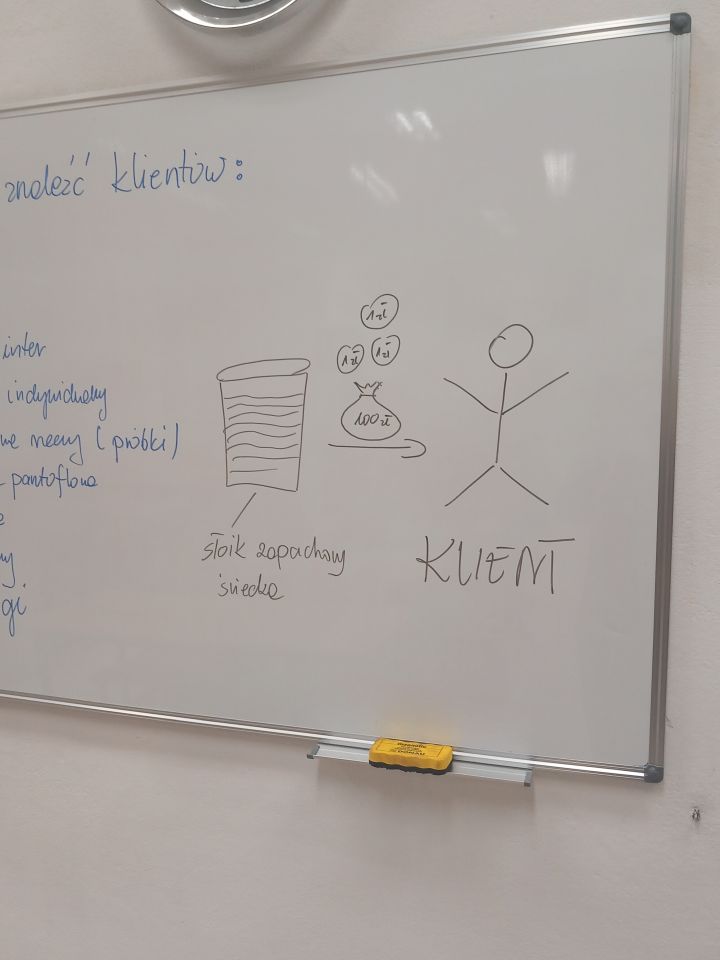 znaleźć klientów:
inter
indywidualny
(próbki)
pantoflowa
1 zł
1 zł 1 zł
100 zł
słoik zapachowy
świeca
KLIENT